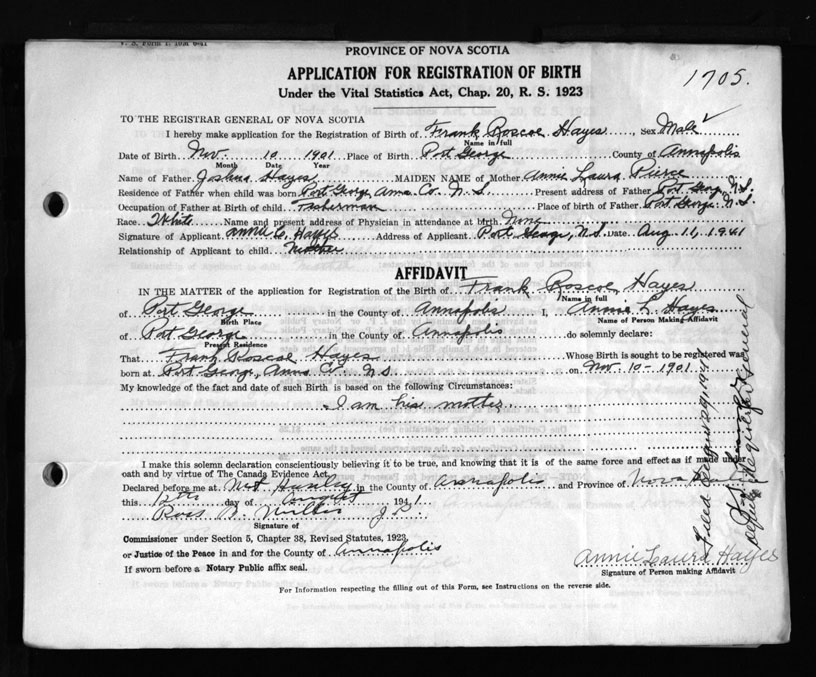 V. S. Form 1. 10M 6-41
PROVINCE OF NOVA SCOTIA
1705.
APPLICATION FOR REGISTRATION OF BIRTH
Under the Vital Statistics Act, Chap. 20, R. S. 1923
TO THE REGISTRAR GENERAL OF NOVA SCOTIA
I hereby make application for the Registration of Birth of Frank Roscoe Hayes, Sex Male
Name in full
Date of Birth Nov. 10 1901 Place of Birth Port George County of Annapolis
Month Date Year
Name of Father Joshua Hayes MAIDEN NAME of Mother Annie Laura Pierce
Residence of Father when child was born Port George, Anna. Co. N. S. Present address of Father Port George, N.S.
Occupation of Father at Birth of child. Fisherman Place of birth of Father Port George N.S.
Race White Name and present address of Physician in attendance at birth None
Signature of Applicant Annie L. Hayes Address of Applicant Port George, N.S. Date Aug 11, 1941
Relationship of Applicant to child Mother
AFFIDAVIT
IN THE MATTER of the application for Registration of the Birth of Frank Roscoe Hayes
Name in full
of Port George in the County of Annapolis I, Annie L. Hayes
Birth Place Name of Person Making Affidavit
of Port George in the County of Annapolis do solemnly declare:
Present Residence
That Frank Roscoe Hayes Whose Birth is sought to be registered was
born at Port George, Anna Co. N.S. on Nov. 10 - 1901.
My knowledge of the fact and date of such Birth is based on the following Circumstances:
I am his mother.
I make this solemn declaration conscientiously believing it to be true, and knowing that it is of the same force and effect as if made under
oath and by virtue of The Canada Evidence Act.
Declared before me at in the County of Annapolis and Province of Nova
this 12th day of August 1941
J.P.
Signature of
Commissioner under Section 5, Chapter 38, Revised Statutes, 1923,
or Justice of the Peace in and for the County of Annapolis
If sworn before a Notary Public affix seal.
Annie Laura Hayes
Signature of Person making Affidavit
For Information respecting the filling out of this Form, see Instructions on the reverse side.
Filed 1941
Deputy Registrar General